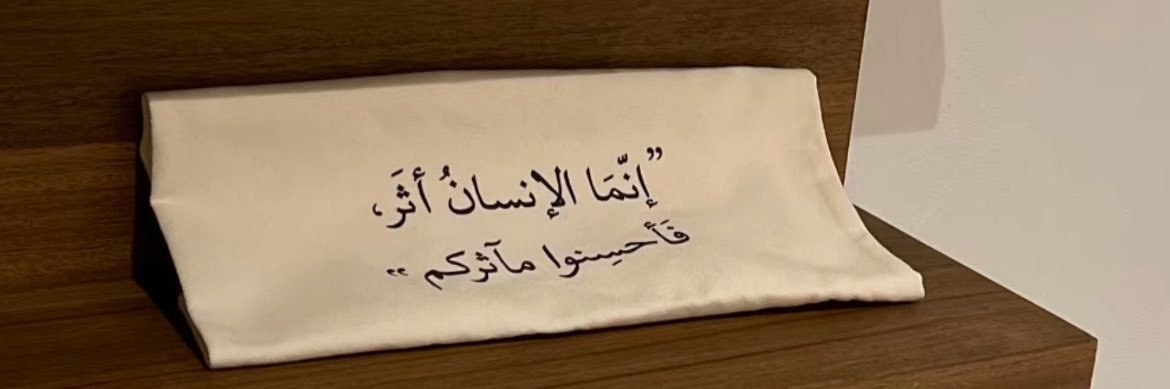 ”إنّمَا الإنسانُ أثَر،
فَأحسِنوا مآثركم “